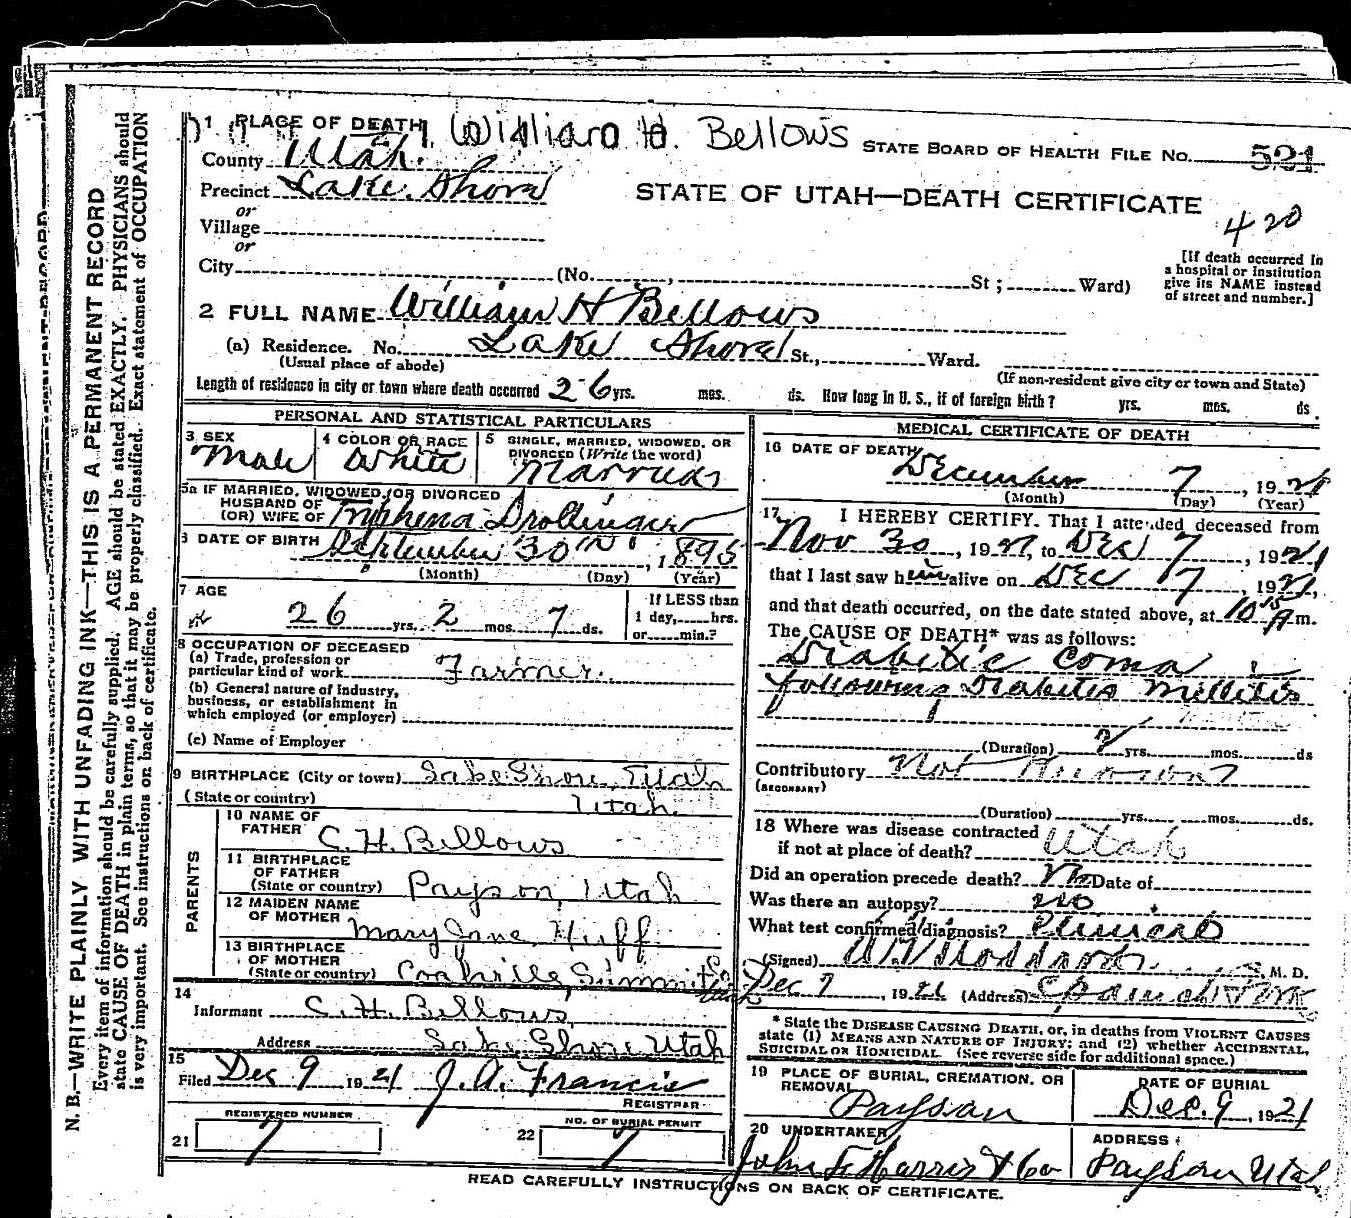 1 PLACE OF DEATH William H. Bellows STATE BOARD OF HEALTH FILE No. 521
County Utah.
Precinct Lake Shore
STATE OF UTAH—DEATH CERTIFICATE
420
or
Village
or
City (No. , St ; Ward)
[If death occurred in
a hospital or institution
give its NAME instead
of street and number.]
2 FULL NAME William H Bellows
(a) Residence. No. Lake Shore St., Ward.
(Usual place of abode) (If non-resident give city or town and State)
Length of residence in city or town where death occurred 26 yrs. mos. ds. How long in U. S., if of foreign birth? yrs. mos. ds.
PERSONAL AND STATISTICAL PARTICULARS
3 SEX
Male
4 COLOR OR RACE
White
5 SINGLE, MARRIED, WIDOWED, OR
DIVORCED (Write the word)
Married
5a IF MARRIED, WIDOWED, OR DIVORCED
HUSBAND OF
(OR) WIFE OF Tryphena Drollinger
6 DATE OF BIRTH September 30th, 1895
(Month) (Day) (Year)
7 AGE
26 yrs. 2 mos. 7 ds.
If LESS than
1 day, hrs.
or min.?
8 OCCUPATION OF DECEASED
(a) Trade, profession or
particular kind of work Farmer.
(b) General nature of industry,
business, or establishment in
which employed (or employer)
(c) Name of Employer
9 BIRTHPLACE (City or town) Lake Shore, Utah
(State or country) Utah.
PARENTS
10 NAME OF
FATHER C. H. Bellows
11 BIRTHPLACE
OF FATHER
(State or country) Payson, Utah
12 MAIDEN NAME
OF MOTHER Mary Jane Huff.
13 BIRTHPLACE
OF MOTHER
(State or country) Coalville, Summit Co
Utah
14
Informant C. H. Bellows,
Address Lake Shore Utah
15
Filed Dec 9 1921 J. A. Francis
REGISTRAR
REGISTERED NUMBER
21 7
NO. OF BURIAL PERMIT
22 7
MEDICAL CERTIFICATE OF DEATH
16 DATE OF DEATH
December 7, 1921
(Month) (Day) (Year)
17 I HEREBY CERTIFY. That I attended deceased from
Nov 30, 1921, to Dec 7, 1921
that I last saw him alive on Dec 7, 1921,
and that death occurred, on the date stated above, at 10 15 A m.
The CAUSE OF DEATH* was as follows:
Diabetic Coma
following Diabetis Millitis
(Duration) 2 yrs. mos. ds
Contributory Not Known
(SECONDARY)
(Duration) yrs. mos. ds.
18 Where was disease contracted
if not at place of death? Utah
Did an operation precede death? no Date of
Was there an autopsy? no
What test confirmed diagnosis? Clinical
(Signed) W. Stoddard, M. D.
Dec 7, 1921 (Address) Spanish Fork
* State the DISEASE CAUSING DEATH, or, in deaths from VIOLENT CAUSES
state (1) MEANS AND NATURE OF INJURY; and (2) whether ACCIDENTAL,
SUICIDAL OR HOMICIDAL. (See reverse side for additional space.)
19 PLACE OF BURIAL, CREMATION, OR
REMOVAL
Payson
DATE OF BURIAL
Dec. 9, 1921
20 UNDERTAKER
John F. Harris & Co
ADDRESS
Payson Utah
READ CAREFULLY INSTRUCTIONS ON BACK OF CERTIFICATE.
N. B.—WRITE PLAINLY WITH UNFADING INK—THIS IS A PERMANENT RECORD
Every item of information should be carefully supplied. AGE should be stated EXACTLY. PHYSICIANS should
state CAUSE OF DEATH in plain terms, so that it may be properly classified. Exact statement of OCCUPATION
is very important. See instructions on back of certificate.